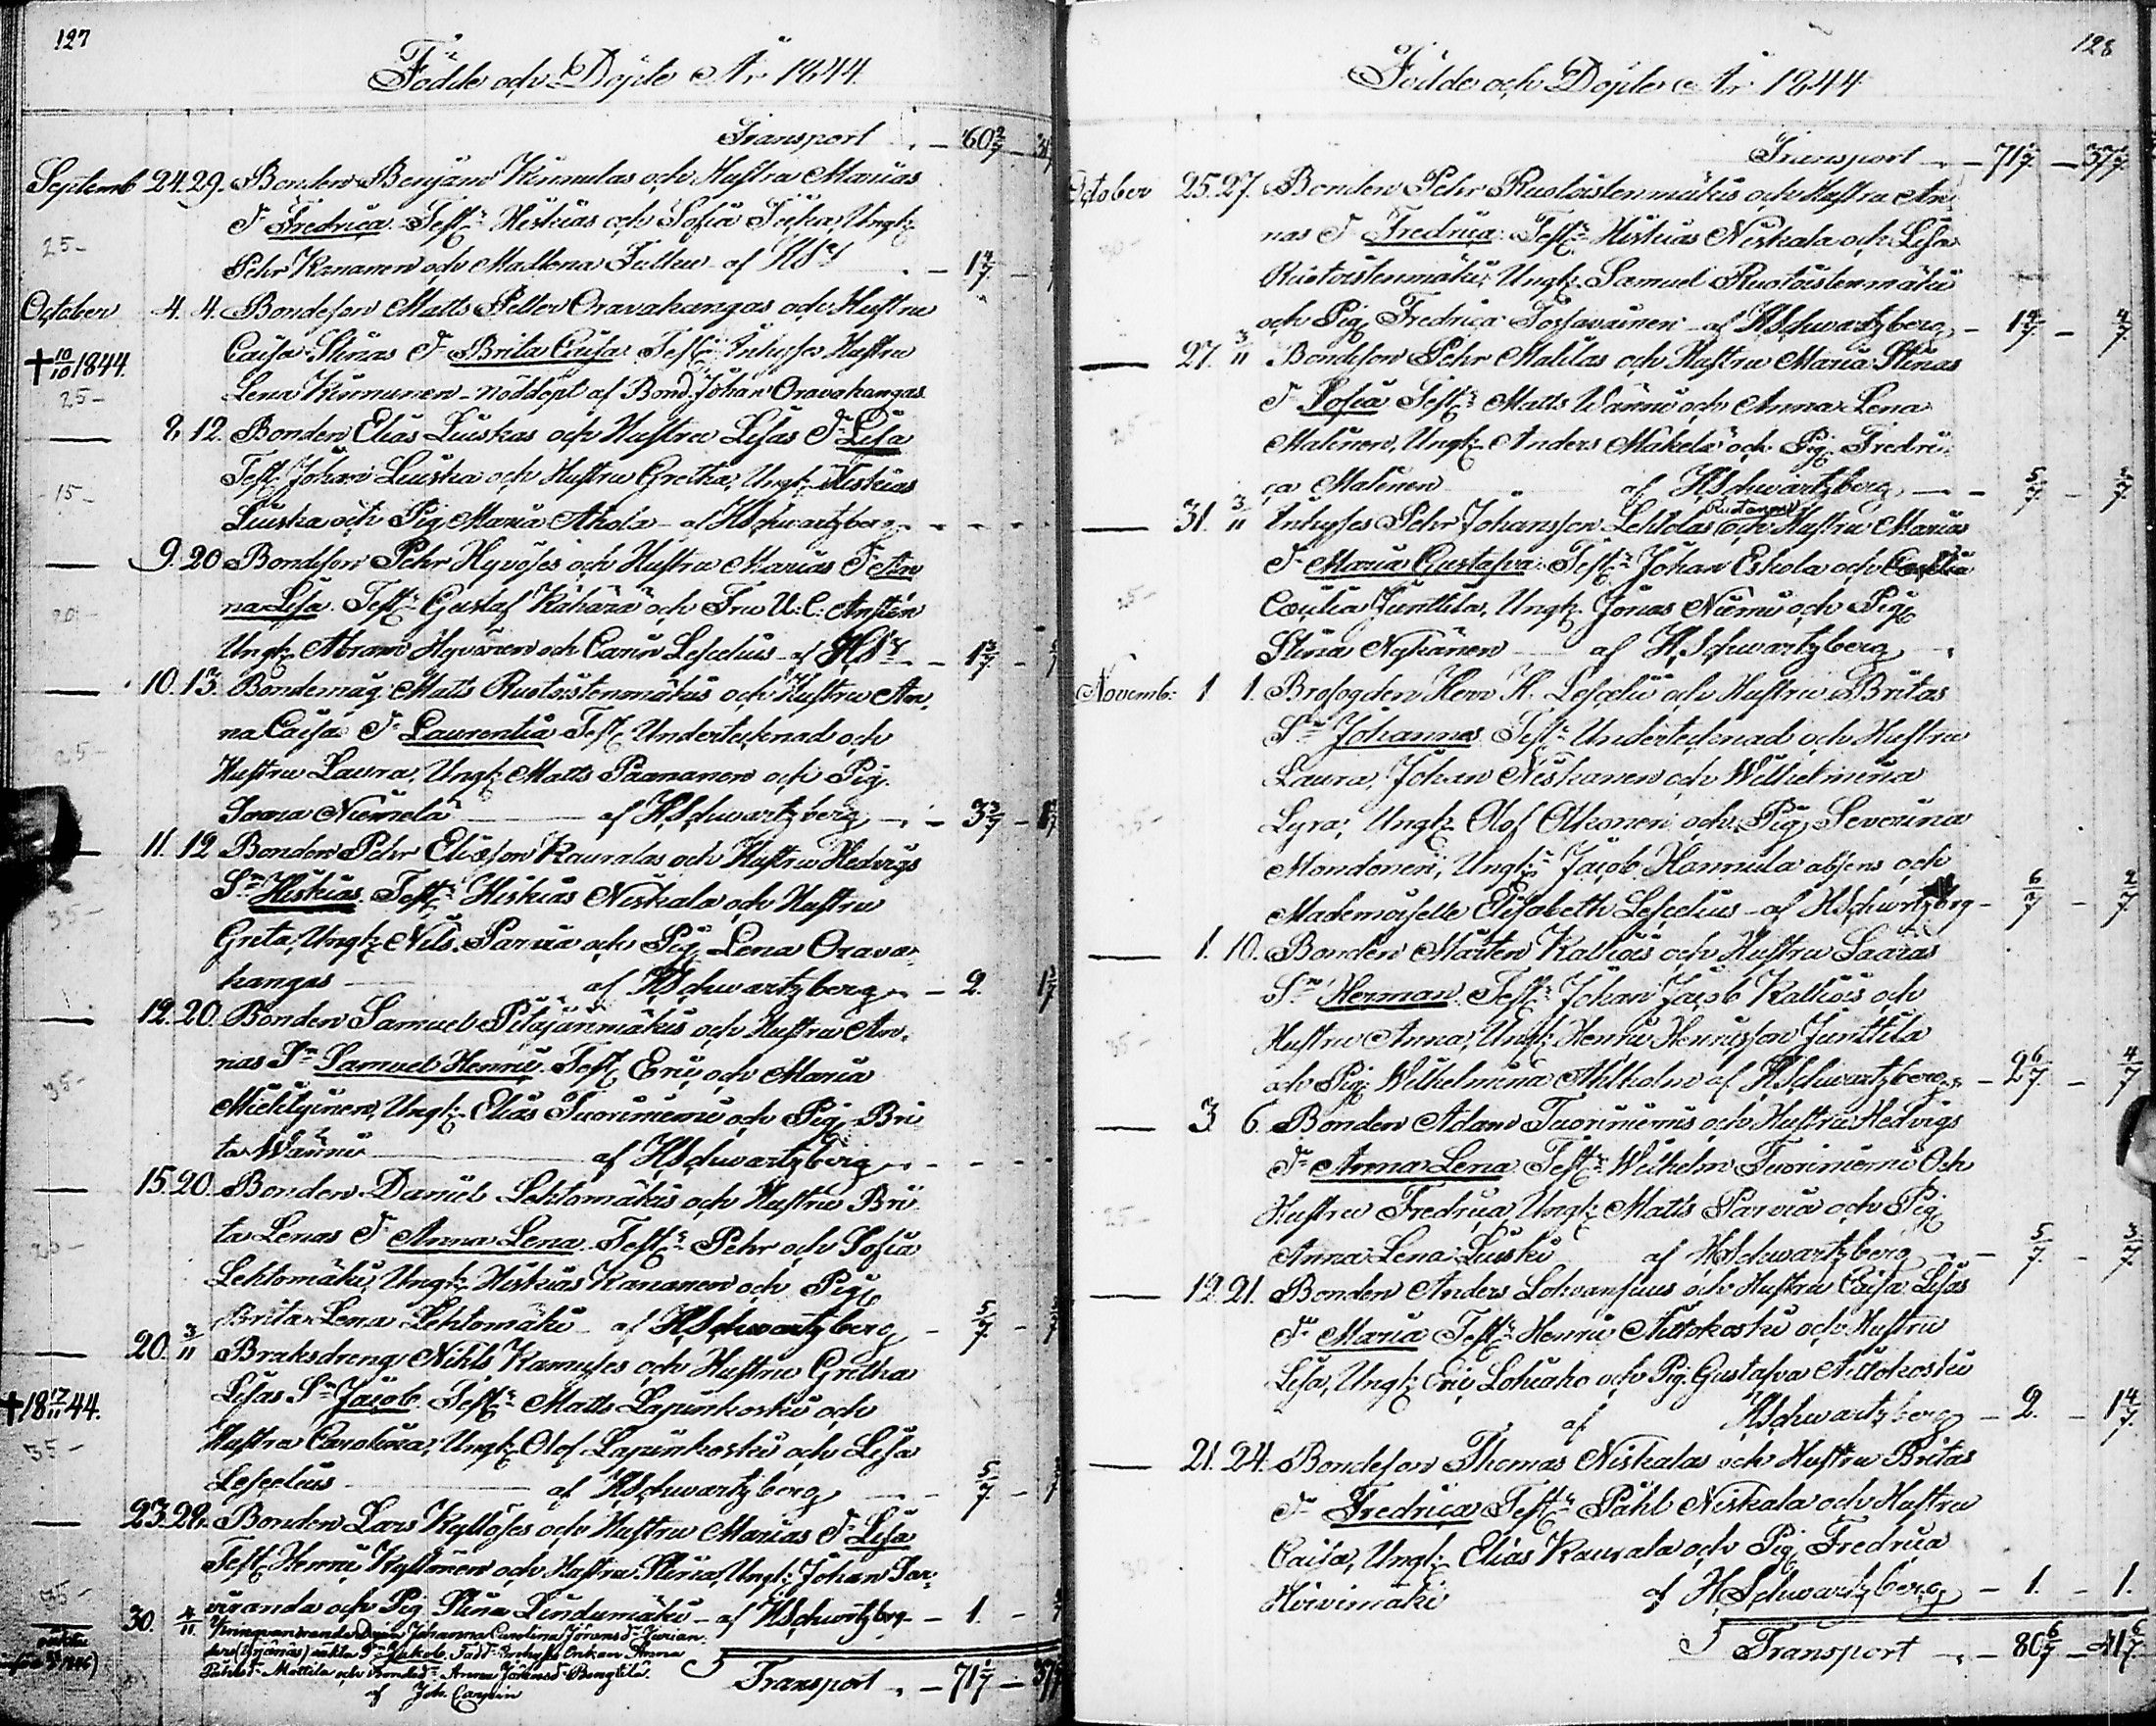 127
Födde och Döpte År 1844.
Transport - 60 2/7
Septemb 24. 29. Bonden Benjam Kinnulas och Hustru Marias
Dr Fredrica. Test: Hiskias och Sofia Ungk:
25- Pehr Kananen och Madlena - af HSz - 1 4/7
October 4. 4. Bondeson Matts Petter Oravakangas och Hustru
†10/10 1844. Caisa Stinas Dr Brita Caisa Test: Inhyses Hustru
25- Lena Kinnunen - nöddöpt af Bond. Johan Oravakangas
8. 12. Bonden Elias Liuskas och Hustru Lisas Dr Lisa
Test: Johan Liuska och Hustru Gretha, Ungk: Hiskias
15- Liuska och Pig. Maria Ahola - af HSchwartzberg
9. 20 Bondeson Pehr Hyvöses och Hustru Marias Dr An
20- na Lisa. Test: Gustaf Kähärä och Fru U: C: Anstén
Ungk: Abram Hyvönen och Carin Lescelius - af HSz - 1 3/7
10. 13. Bondemåg Matts Ruotoistenmäkis och Hustru An
na Caisa Dr Laurentia Test: Undertecknad och
25- Hustru Laura, Ungk: Matts Paananen och Pig.
Niemelä - af HSchwartzberg - 3 3/7
11. 12 Bonden Pehr Eliasson Kauralas och Hustru Hedvigs
Sn Hiskias. Test: Hiskias Niskala och Hustru
35- Greta, Ungk: Nils Parvia och Pig. Lena Orava
kangas af HSchwartzberg - 2.
12. 20. Bonden Samuel Pitäjänmäkis och Hustru An
nas Sn Samuel Henric. Test: Eric och Maria
35- Mielityinen, Ungk: Elias Tuoriniemi och Pig. Bri
ta Wännri af HSchwartzberg
15. 20. Bonden Daniel Lehtomäkis och Hustru Bri
ta Lenas Dr Anna Lena. Test: Pehr och Sofia
Lehtomäki, Ungk: Hiskias Kananen och Pig.
Brita Lena Lehtomäki - af HSchwartzberg - 5/7
20. 3/11 Braksdreng Nikls och Hustru Gretha
†18 17/11 44. Lisas Sn Jacob. Test: Matts Lapinkoski och
35- Hustru Carolina, Ungk: Olof Lapinkoski och Lisa
Lescelius af HSchwartzberg - 5/7
23. 28. Bonden Lars Kyllöses och Hustru Marias Dr Lisa
Test: Henric Kyllönen och Hustru Stina, Ungk: Johan Sar
viranda och Pig Stina Lindumäki - af HSchwrtzberg - 1.
30. 4/11 Johanna Carolina Jöransdr
oäkta Sn Jakob. Enkan Anna
Mattila och Anna Jöransdr
af Joh. Cajan
Transport - 71 1/7
128
Födde och Döpte År 1844
Transport - 71 1/7 - 37 5/7
October 25. 27. Bonden Pehr Ruotoistenmäkis och Hustru An
nas Dr Fredrica. Test: Hiskias Niskala och Lisa
Ruotoistenmäki, Ungk: Samuel Ruotoistenmäki
och Pig. Fredrica Tossavainen - af HSchwartzberg - 1 4/7 - 4/7
27. 3/11 Bondeson Pehr Malilas och Hustru Maria Stinas
Dr Sofia Test: Matts Wänni och Anna Lena
Malinen, Ungk: Anders Mäkelä och Pig. Fredri
ca Malinen af HSchwartzberg - 5/7
31. 3/11 Inhyses Pehr Johansson Lehtolas och Hustru Marias
Dr Maria Gustafva. Test: Johan Eskola och
25- Cæcilia Junttila, Ungk: Jonas Niemi och Pig
Stina Nykänen af HSchwartzberg
Novemb: 1 1. Brofogden Herr H. Lescelii och Hustru Britas
Sn Johannes Test: Undertecknad och Hustru
Laura, Johan Niskanen och Wilhelmina
Lyra, Ungk: Olof Alkonen och Pig. Severina
Mondonen, Ungk: Jacob Hannula absens och
Mademoiselle Elisabeth Lescelius - af HSchwrtzberg - 6/7 - 2/7
1. 10. Bonden Mårten Kalliois och Hustru Saaras
Sn Herman. Test: Johan Jacob Kalliois och
35- Hustru Anna, Ungk: Henric Henricsson Junttila
och Pig. Wilhelmina Ahlholm af HSchwartzberg - 2 6/7 - 4/7
3. 6. Bonden Adam Tuoriniemis och Hustru Hedvigs
Dr Anna Lena. Test: Wilhelm Tuoriniemi Och
25- Hustru Fredrica Ungk: Matts Parvia och Pig
Anna Lena Liuski af HSchwartzberg - 5/7 - 3/7
12. 21. Bonden Anders Lohvansuus och Hustru Caisa Lisas
Dr Maria Test: Henric Aittokoski och Hustru
Lisa, Ungk: Eric Lohiaho och Pig. Gustafva Aittokoski
af HSchwartzberg - 2. - 1 4/7
21. 24. Bondeson Thomas Niskalas och Hustru Britas
Dr Fredrica Test: Påhl Niskala och Hustru
Caisa, Ungk: Elias Kaurala och Pig. Fredrica
Hoivimäki af HSchwartzberg - 1. - 1.
Transport - 80 6/7 - 41 6/7